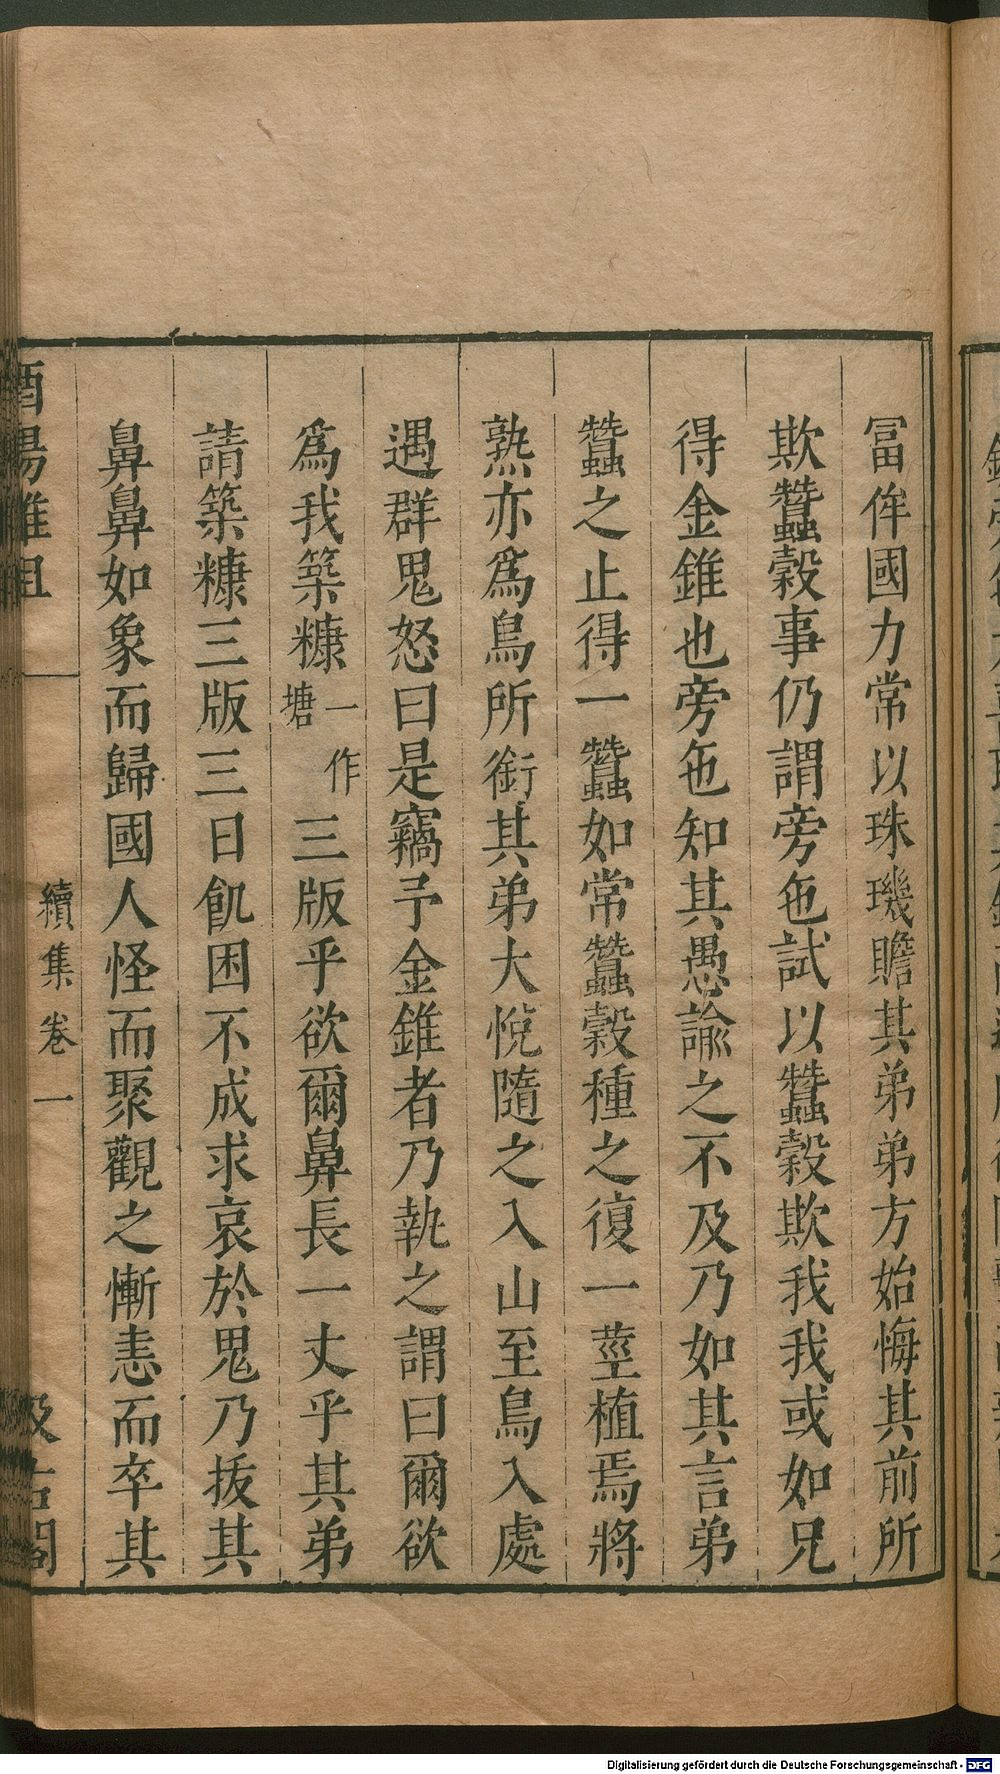 冨侔國力常以珠璣贍其弟弟方始悔其前所
欺蠶穀事仍謂旁㐌試以蠶穀欺我我或如兄
得金錐也旁㐌知其愚諭之不及乃如其言弟
蠶之止得一蠶如常蠶穀種之復一莖植焉將
熟亦爲鳥所銜其弟大悅隨之入山至鳥入處
遇群鬼怒曰是竊予金錐者乃執之謂曰爾欲
爲我築糠一作塘三版乎欲爾鼻長一丈乎其弟
請築糠三版三日飢困不成求哀於鬼乃拔其
鼻鼻如象而歸國人怪而聚觀之慚恚而卒其
酉陽雜俎 續集卷一 汲古閣
Digitalisierung gefördert durch die Deutsche Forschungsgemeinschaft - DFG